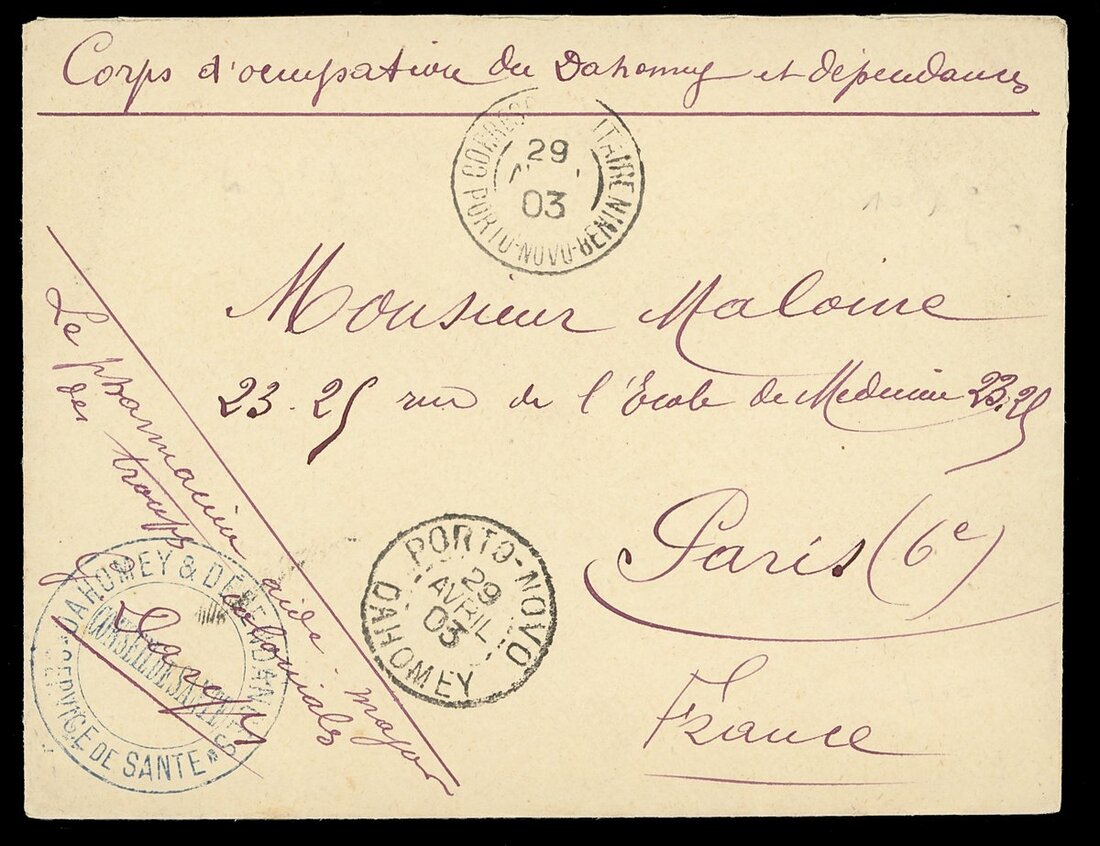 Corps d'ocupation du Dahomey et dépendances
CORRESP ITAIRE
29
03
PORTO-NOVO-BENIN
Monsieur Maloine
23.25 rue de l'École de Medecine 23.25
Paris (6e)
France
Le pharmacien aide-major
des troupes coloniales
DAHOMEY & DÉPENDANCES
CONSEIL DE SANTÉ
* SERVICE DE SANTÉ *
PORTO-NOVO
29
AVRIL
03
DAHOMEY